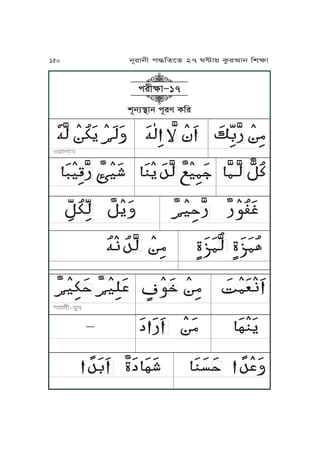 ১৫০ নূরানী পদ্ধতিতে ২৭ ঘণ্টায় কুরআন শিক্ষা
পরীক্ষা-১৭
শূন্যস্থান পূরণ করি
مِنْ رَّبِّكَ اَنْ لَّا اِلٰهَ وَلَمْ يَكُنْ لَّهٗ
كُلٌّ لَّمَّا جَمِيْعٌ لَّدَيْنَا شَيْئٍ رَّقِيْبًا
غَفُوْرٌ رَّحِيْمٌ وَيْلٌ لِّكُلِّ
هُمَزَةٍ لُّمَزَةٍ مِنْ لَّدُنْهُ
اَنْعَمْتَ مِنْ خَوْفٍ عَلِيْمٌ حَكِيْمٌ
يَنْهَا مَنْ اَرَادَ –
وَعْدًا حَسَنًا شَهَادَةً اَبَدًا